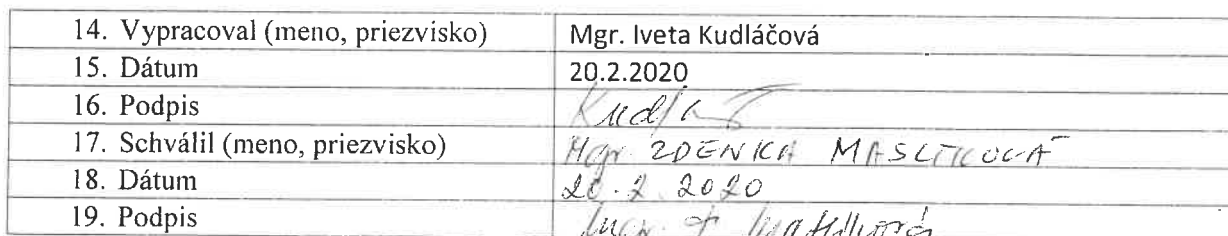 14. Vypracoval (meno, priezvisko) Mgr. Iveta Kudláčová
15. Dátum 20.2.2020
16. Podpis
17. Schválil (meno, priezvisko) Mgr. ZDENKA
18. Dátum 20.2.2020
19. Podpis